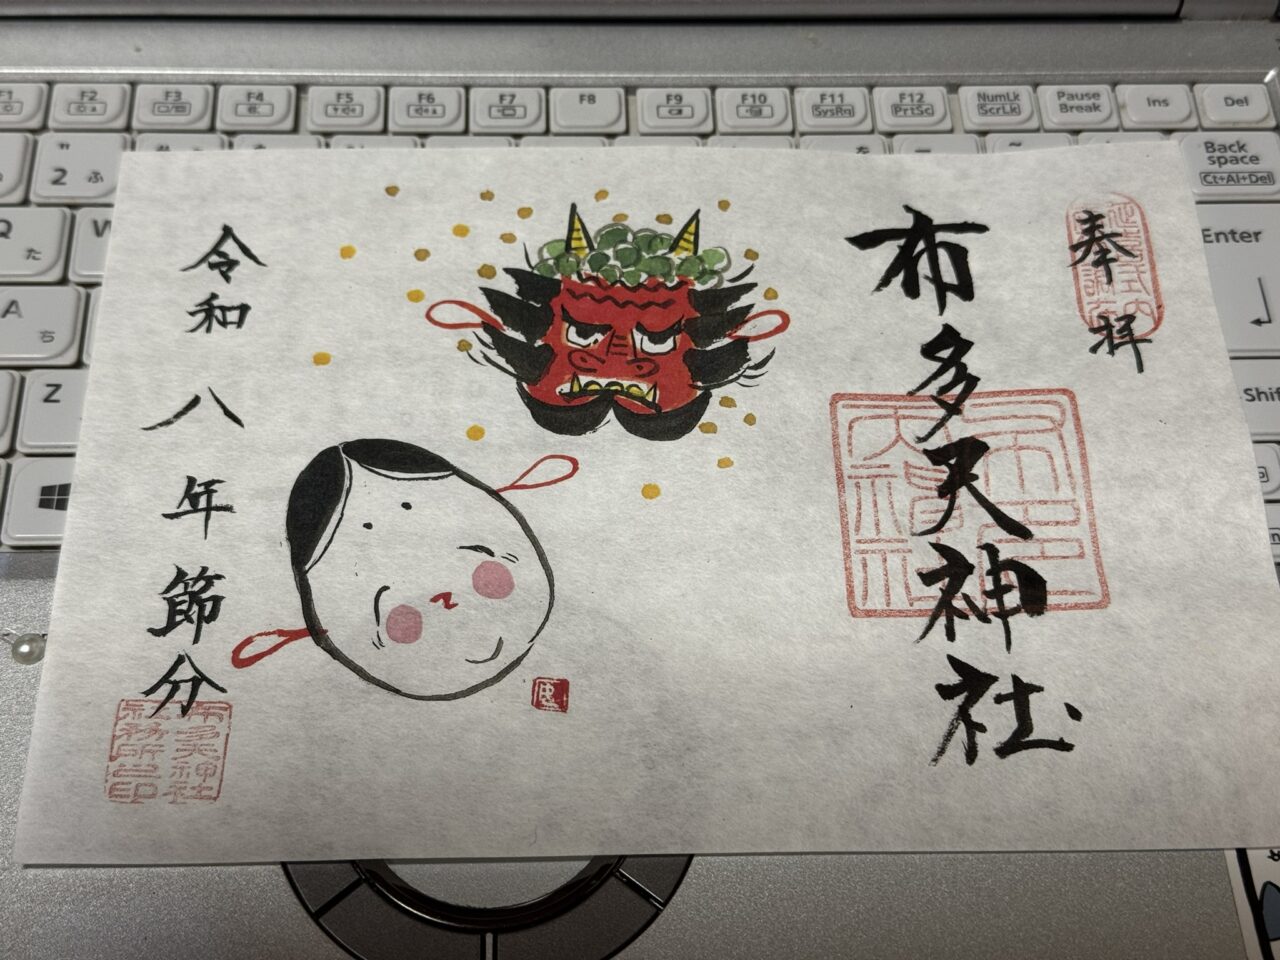 奉拝
布多天神社
令和八年節分
布多天神社
社務所之印
F2
F3
F4
F5
F6
F7
F8
F9
F10
F11
SysRq
F12
PrtSc
NumLk
ScrLk
Pause
Break
Ins
Del
2 ふ
Back
space
Ct+Al+Del
Q
た
W
Enter
A
ち
Z
Shif